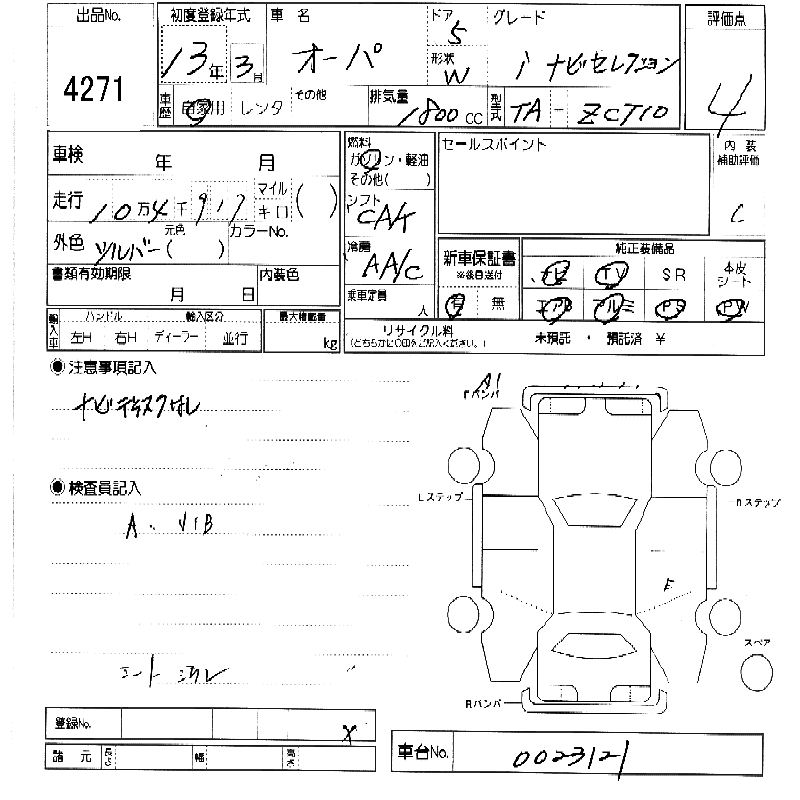 出品No. 初度登録年式 車名 ドア 5 グレード 評価点
4271 13年 3月 オーパ 形状 W i ナビセレクション 4
車歴 自家用 レンタ その他 排気量 1800 cc 型式 TA - ZCT10
車検 年 月 燃料 ガソリン・軽油 その他( ) セールスポイント 内装補助評価
走行 10万4千917 マイル キロ ( ) シフト CAT C
外色 シルバー 元色( ) カラーNo. 冷房 AA/C 新車保証書 ※後日送付 純正装備品
ナビ TV SR 本皮シート
書類有効期限 年 月 日 内装色 乗車定員 人 有 無 エアB アルミ PS PW
輸入車 ハンドル 輸入区分 最大積載量 リサイクル料
左H 右H ディーラー 並行 kg (どちらかに○印をご記入ください。) 未預託 ・ 預託済 ¥
●注意事項記入
ナビディスクなし
A1
Fバンパ
●検査員記入
Lステップ Rステップ
A・
E
スペア
Rバンパ
登録No. X
諸元 長さ 幅 高さ 車台No. 0023121